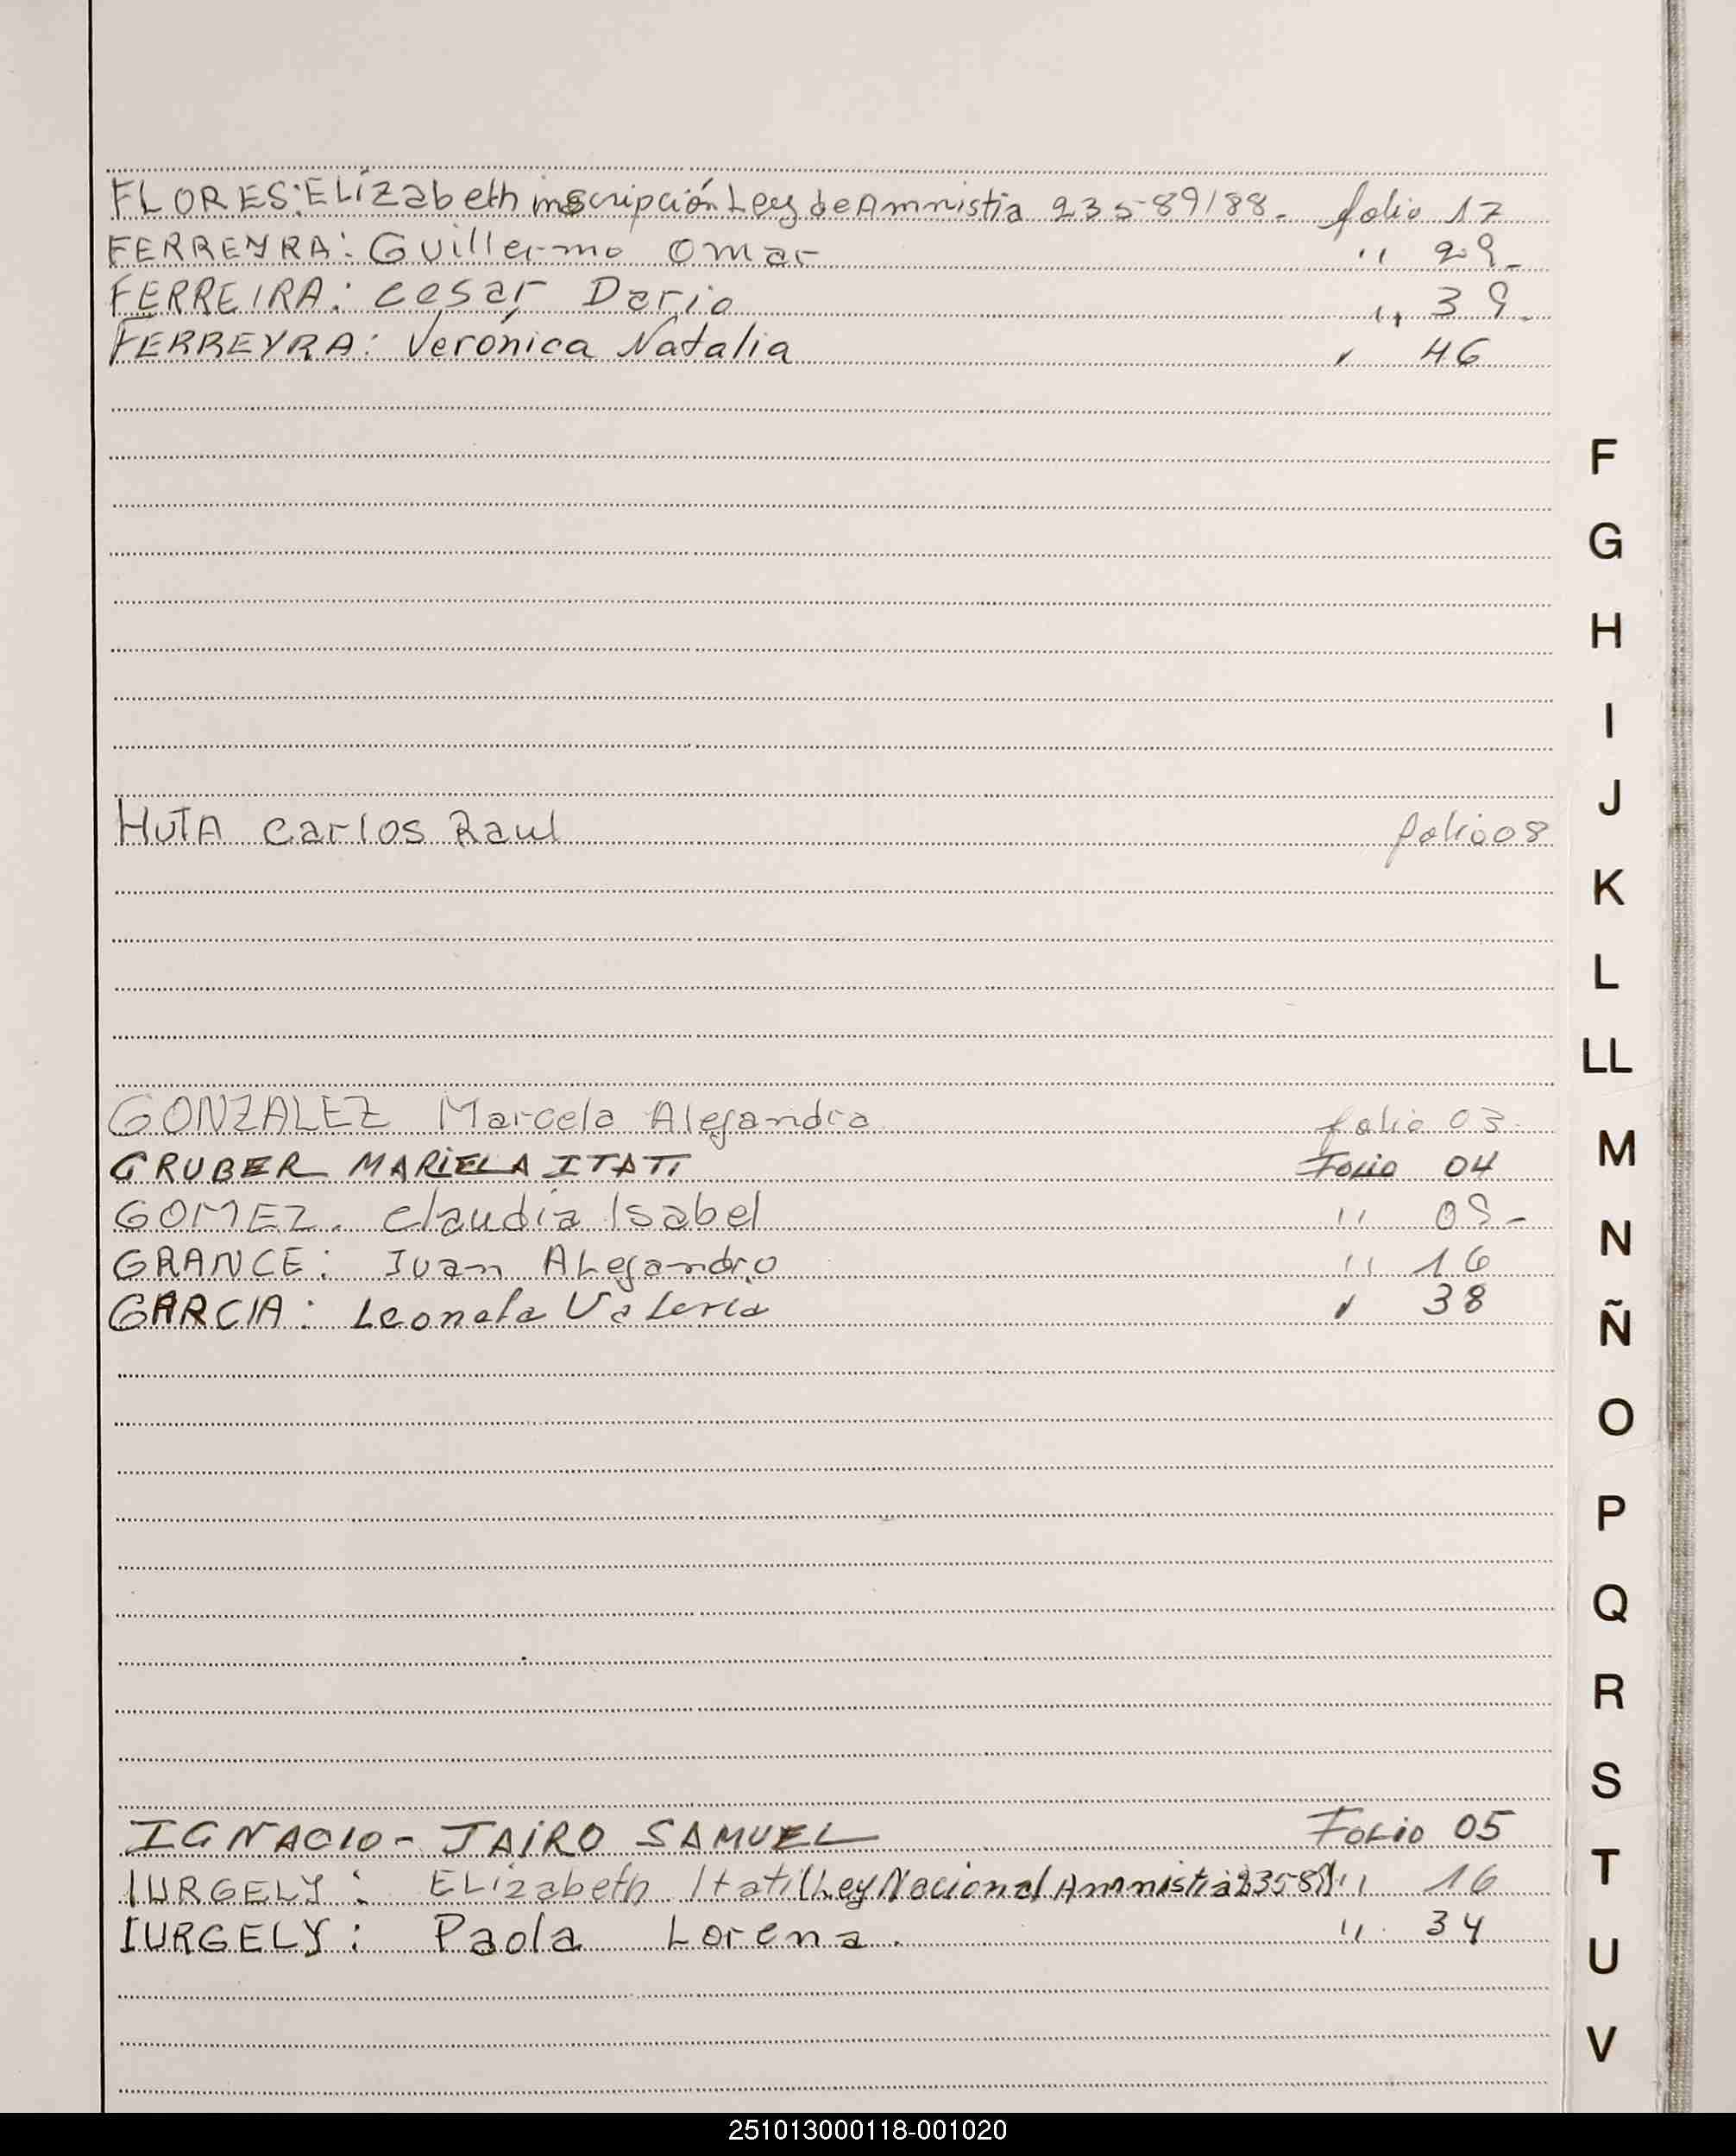 FLORES: Elizabeth inscripción Ley de Amnistia 23589/88. folio 17
FERREYRA: Guillermo Omar " 29.
FERREIRA: cesar Dario " 39.
FERREYRA: Verónica Natalia " 46
F
G
H
I
J
HUTA Carlos Raul folio 08
K
L
LL
GONZALEZ Marcela Alejandra folio 03.
M
GRUBER MARIELA ITATI Folio 04
GOMEZ. Claudia Isabel " 09-
N
GRANCE: Iván Alejandro " 16
GARCIA: Leonela Valeria " 38
Ñ
O
P
Q
R
S
IGNACIO - JAIRO SAMUEL Folio 05
T
IURGELY: Elizabeth Itatí (Ley Nacional Amnistia 23589) " 16
IURGELY: Paola Lorena. " 34
U
V
251013000118-001020